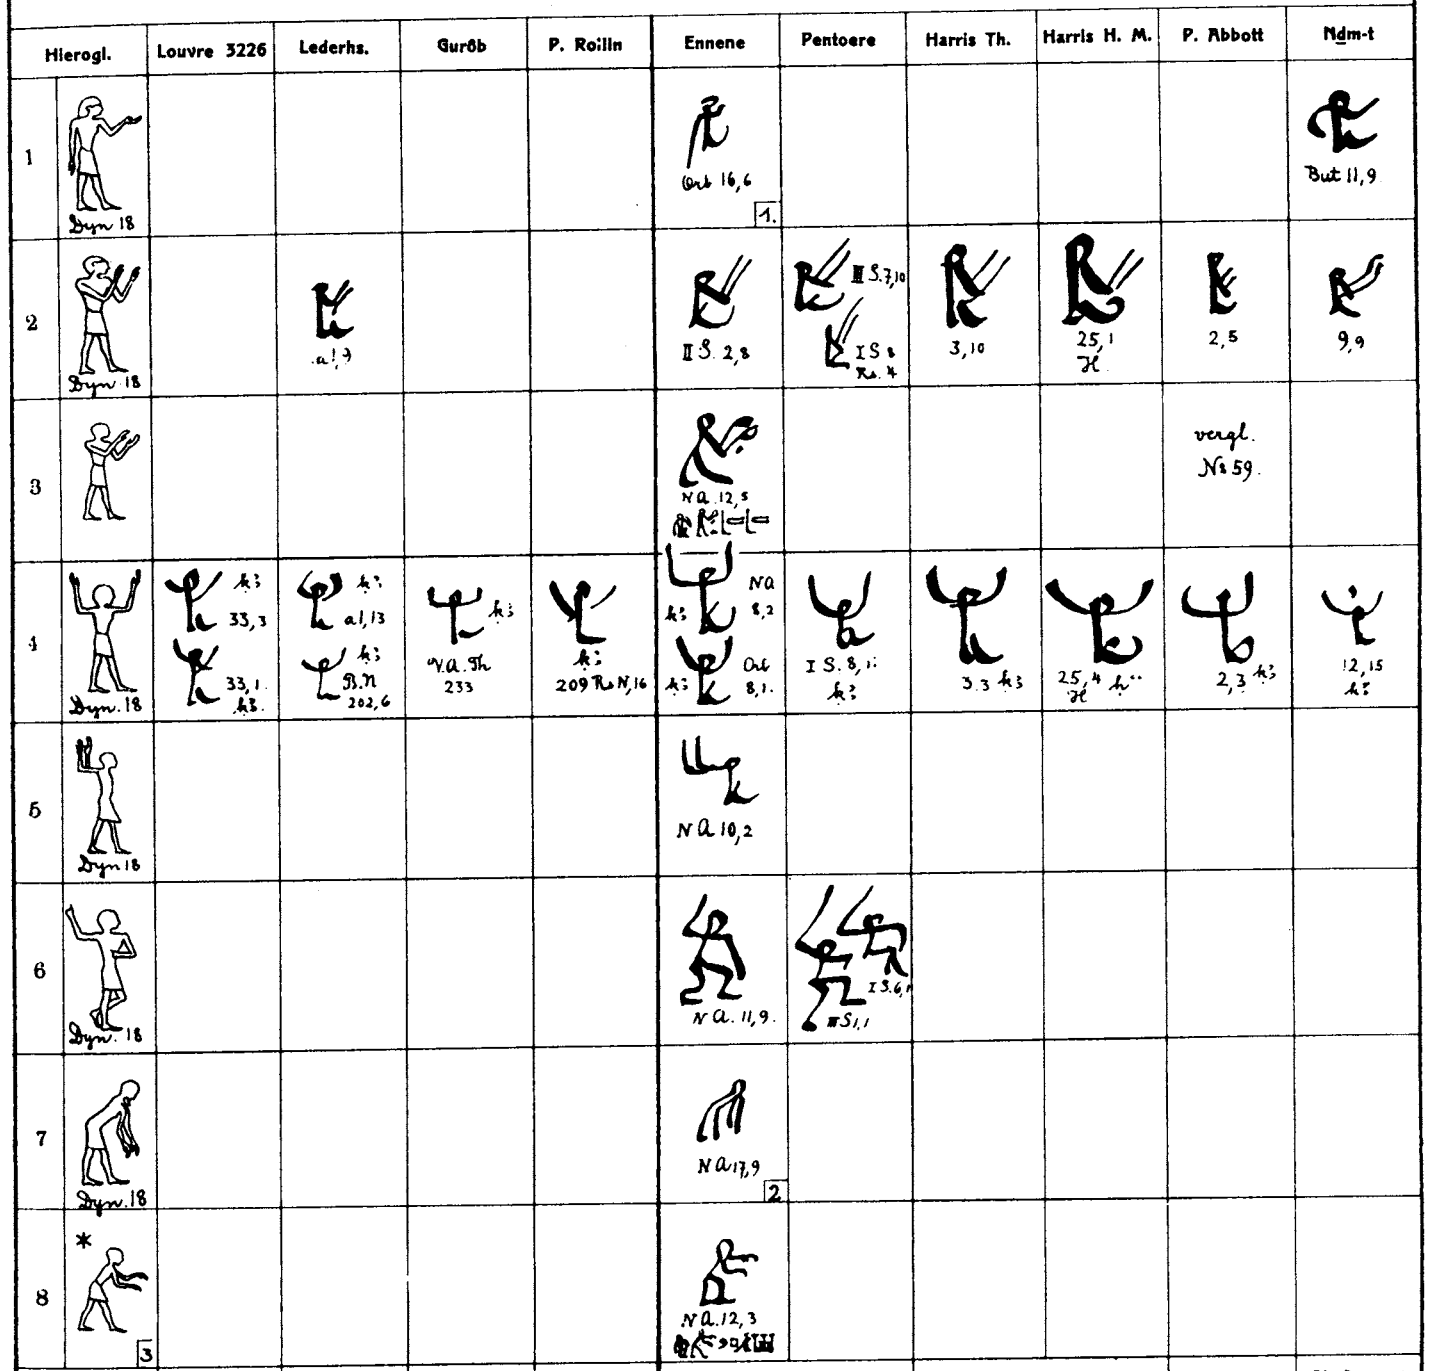 Hierogl. Louvre 3226 Lederhs. Gurôb P. Rollin Ennene Pentoere Harris Th. Harris H. M. P. Abbott Nḏm-t
1
Dyn 18
Orb 16,6
1.
But 11,9
2
Dyn 18
a1,9
II S. 2,8
III S. 7,10
I S 8
Rs. 4
3,10
25,1
H.
2,5
9,9
3
NA. 12,5
vergl.
No 59.
4
Dyn. 18
kꜣ
33,3
33,1.
kꜣ.
kꜣ
a1,13
kꜣ
B.N
202,6
kꜣ
V.A.Th
233
kꜣ
209 Rs N,16
NA
8,2
kꜣ
Orb
8,1.
kꜣ
I S. 8,1
kꜣ
3.3 kꜣ
25,4
H
2,3 kꜣ
12,15
kꜣ
5
Dyn 18
NA 10,2
6
Dyn. 18
NA. 11,9.
I S. 6,1
III S 1,1
7
Dyn. 18
NA 17,9
2
8
*
3
NA. 12,3